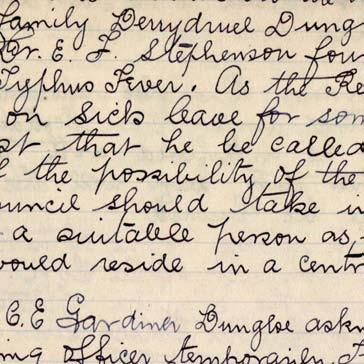 family Derrydruel Dung
Dr. E. F. Stephenson fou
Typhus Fever. As the Re
on sick leave for som
st that he be called
f the possibility of the
ouncil should take u
a suitable person as
would reside in a centr
C.E Gardiner Dungloe askn
ing officer temporarily